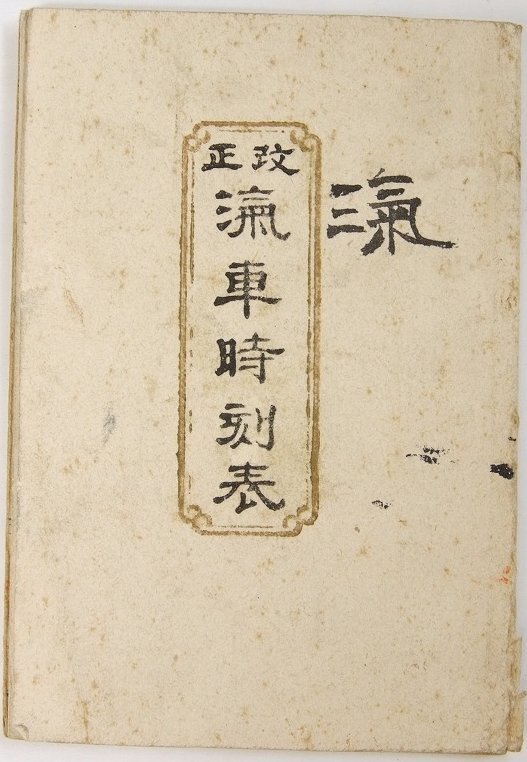 滊
改正
滊車時刻表